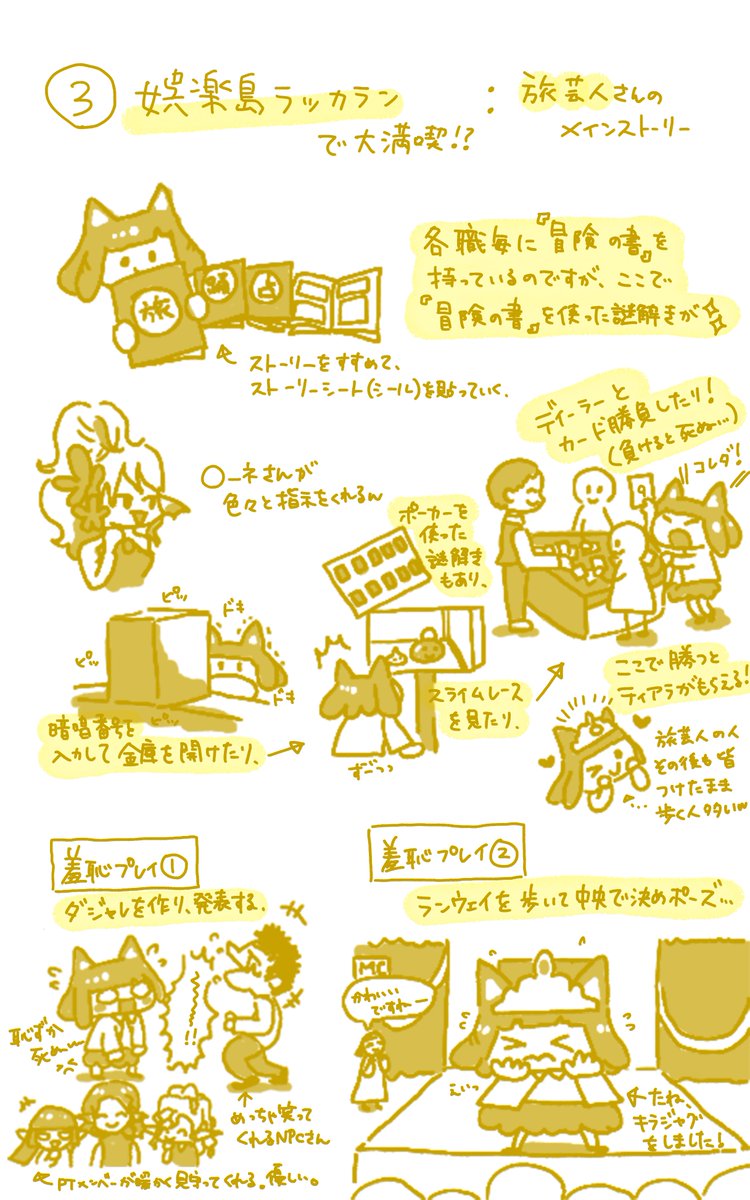 ③ 娯楽島ラッカラン
で大満喫!?
：旅芸人さんの
メインストーリー
各職毎に『冒険の書』を
持っているのですが、ここで
『冒険の書』を使った謎解きが
旅
踊
占
ストーリーをすすめて、
ストーリーシート(シール)を貼っていく。
○ーネさんが
色々と指示をくれるん
ディーラーと
カード勝負したり!
(負けると死ぬ…)
コレダ!
ポーカーを
使った
謎解き
もあり、
ピッ
ドキ
ピッ
ドキ
ピッ
暗唱番号を
入力して金庫を開けたり、
スライムレース
を見たり、
ずごっっ
ここで勝つと
ティアラがもらえる!
旅芸人の人
その後も皆
つけたまま
歩く人多いw
羞恥プレイ①
ダジャレを作り、発表する。
!!
恥ずか
死ぬ…
めっちゃ笑って
くれるNPCさん
PTメンバーが暖かく見守ってくれる。優しい。
羞恥プレイ②
ランウェイを歩いて中央で決めポーズ…
MC
かわいい
ですわー
えいっ
たね、
キラジャグ
をしました!